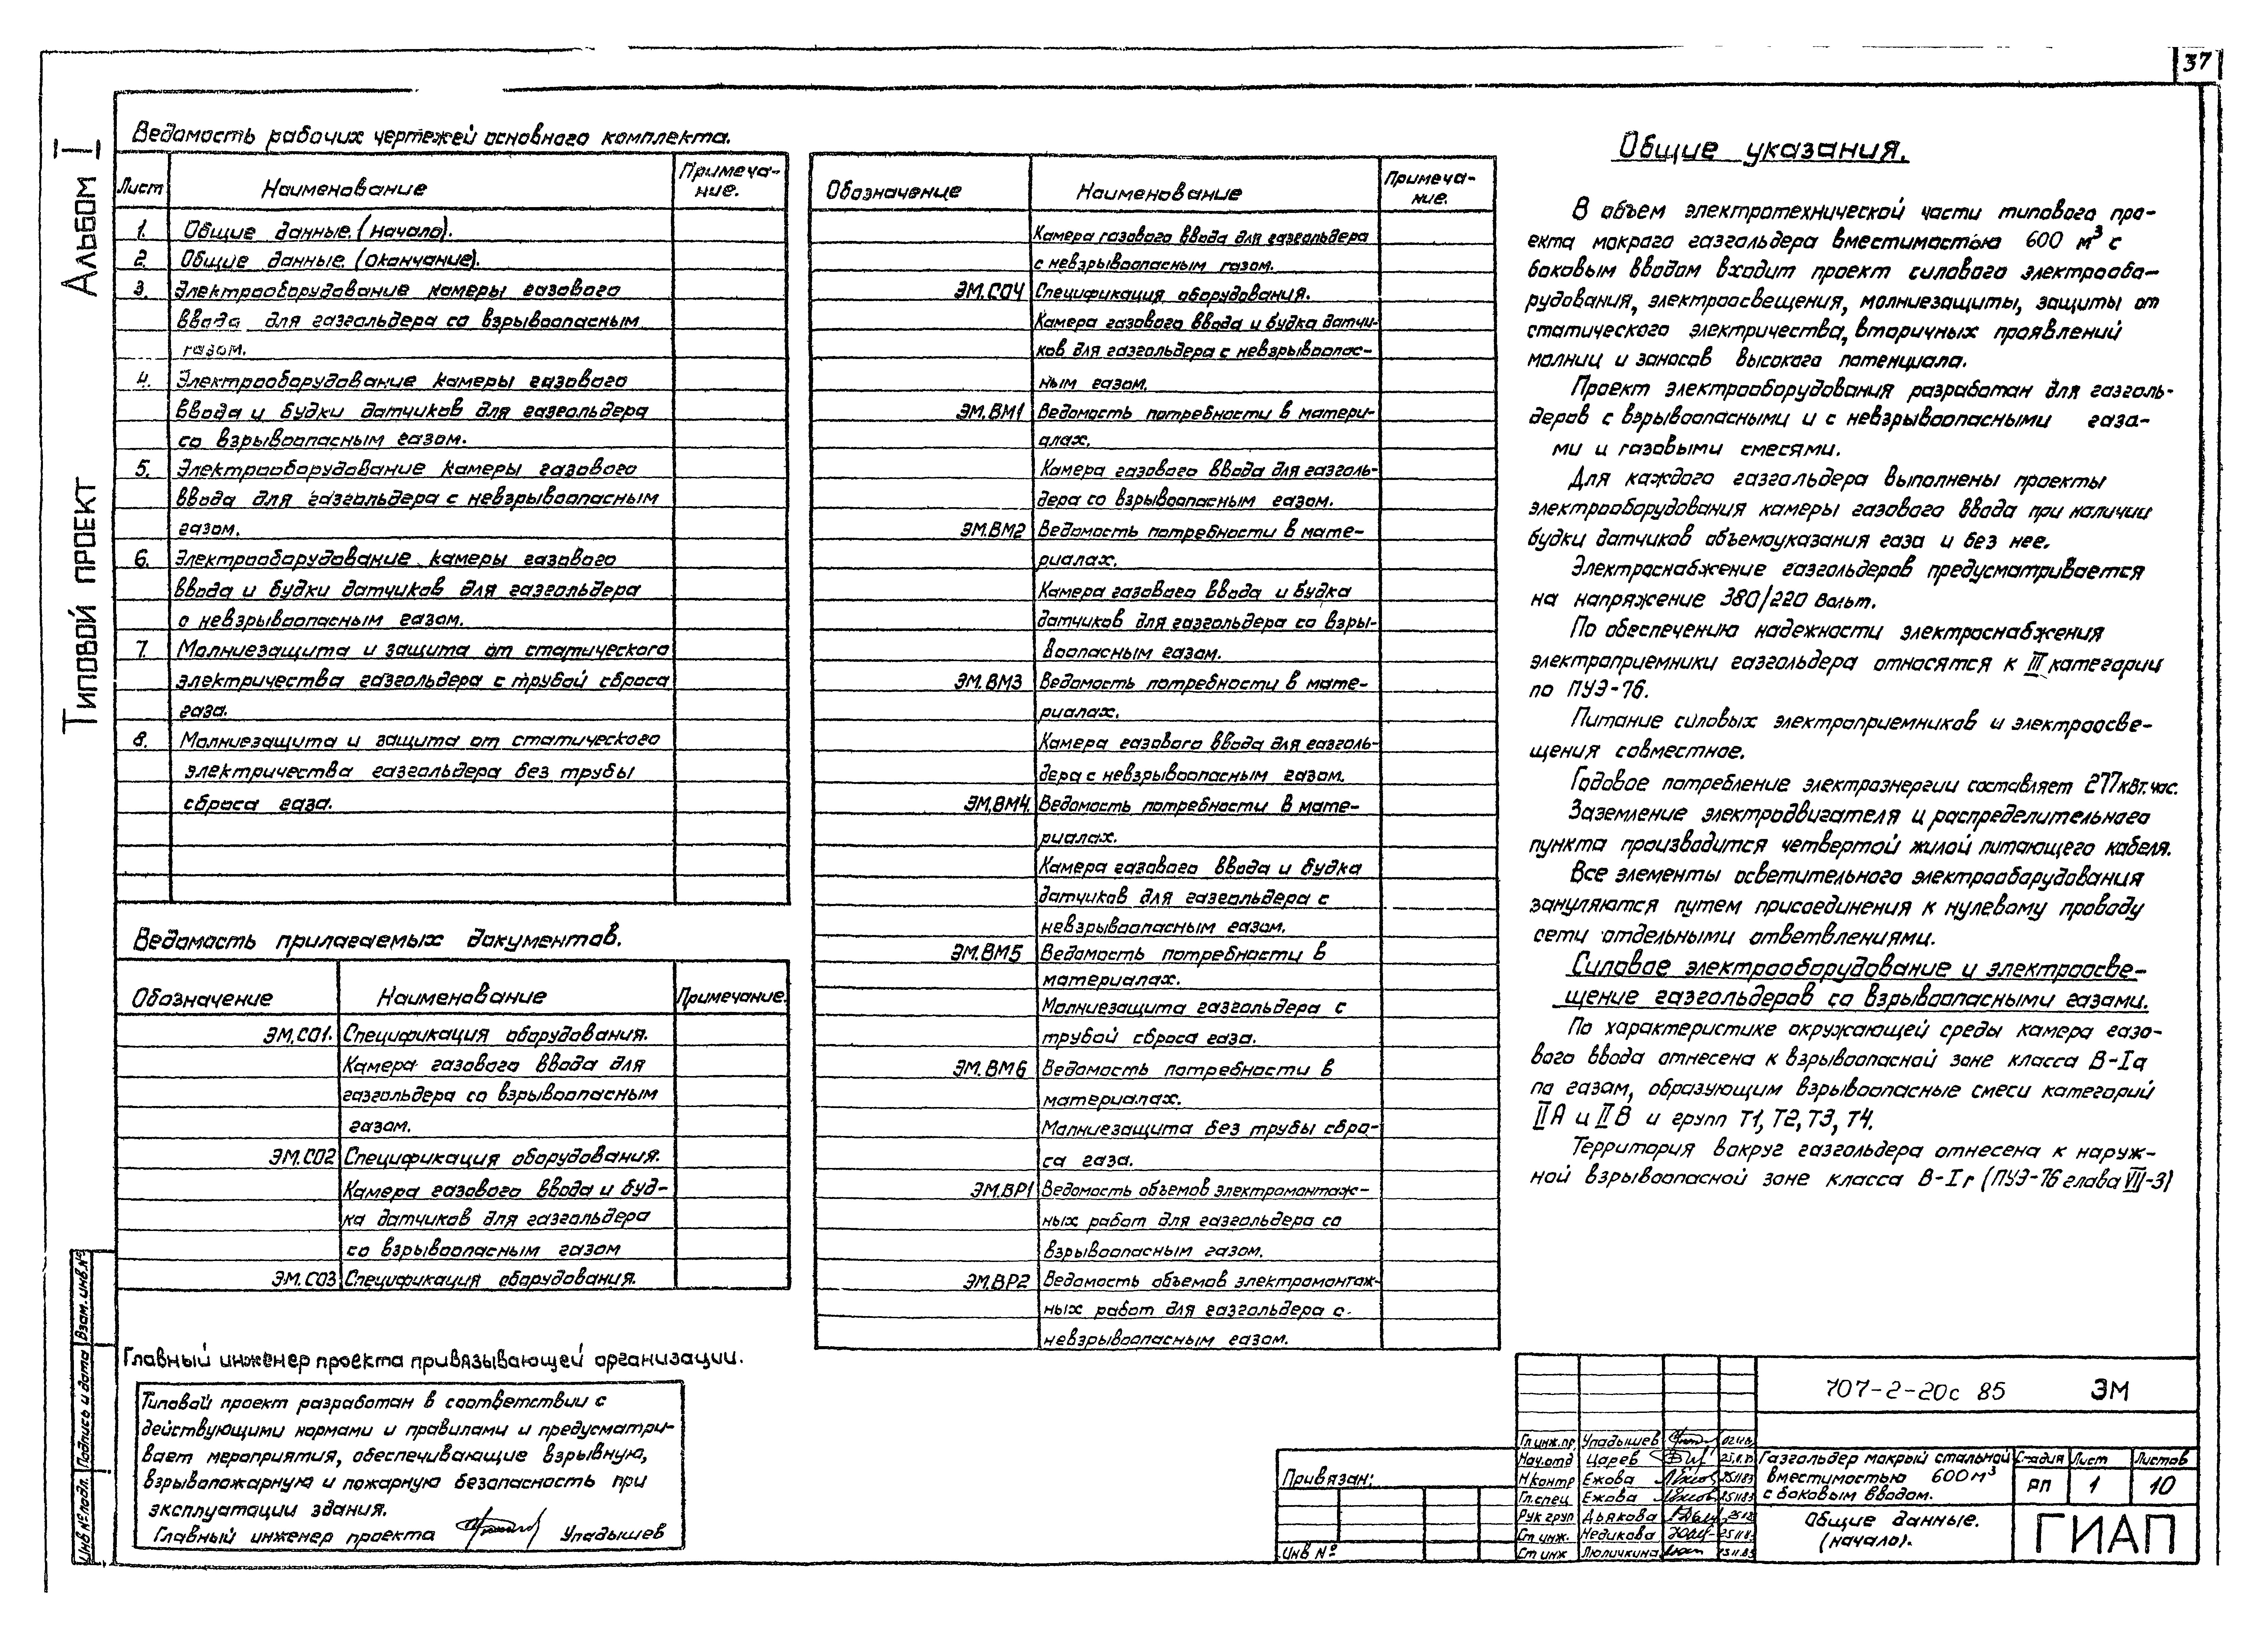 37
Альбом I
Типовой проект
Ведомость рабочих чертежей основного комплекта.
Лист Наименование Примеча-
ние.
1. Общие данные. (начало).
2. Общие данные. (окончание).
3. Электрооборудование камеры газового
ввода для газгольдера со взрывоопасным
газом.
4. Электрооборудование камеры газового
ввода и будки датчиков для газгольдера
со взрывоопасным газом.
5. Электрооборудование камеры газового
ввода для газгольдера с невзрывоопасным
газом.
6. Электрооборудование камеры газового
ввода и будки датчиков для газгольдера
с невзрывоопасным газом.
7. Молниезащита и защита от статического
электричества газгольдера с трубой сброса
газа.
8. Молниезащита и защита от статического
электричества газгольдера без трубы
сброса газа.
Ведомость прилагаемых документов.
Обозначение Наименование Примечание.
ЭМ.СО1. Спецификация оборудования.
Камера газового ввода для
газгольдера со взрывоопасным
газом.
ЭМ.СО2 Спецификация оборудования.
Камера газового ввода и буд-
ка датчиков для газгольдера
со взрывоопасным газом
ЭМ.СО3 Спецификация оборудования.
Главный инженер проекта привязывающей организации.
Типовой проект разработан в соответствии с
действующими нормами и правилами и предусматри-
вает мероприятия, обеспечивающие взрывную,
взрывопожарную и пожарную безопасность при
эксплуатации здания.
Главный инженер проекта Упадышев
Инв № подл. Подпись и дата Взам. инв. №
Обозначение Наименование Примеча-
ние.
Камера газового ввода для газгольдера
с невзрывоопасным газом.
ЭМ.СО4 Спецификация оборудования.
Камера газового ввода и будка датчи-
ков для газгольдера с невзрывоопас-
ным газом.
ЭМ.ВМ1 Ведомость потребности в матери-
алах.
Камера газового ввода для газголь-
дера со взрывоопасным газом.
ЭМ.ВМ2 Ведомость потребности в мате-
риалах.
Камера газового ввода и будка
датчиков для газгольдера со взры-
воопасным газом.
ЭМ.ВМ3 Ведомость потребности в мате-
риалах.
Камера газового ввода для газголь-
дера с невзрывоопасным газом.
ЭМ.ВМ4. Ведомость потребности в мате-
риалах.
Камера газового ввода и будка
датчиков для газгольдера с
невзрывоопасным газом.
ЭМ.ВМ5 Ведомость потребности в
материалах.
Молниезащита газгольдера с
трубой сброса газа.
ЭМ.ВМ6 Ведомость потребности в
материалах.
Молниезащита без трубы сбро-
са газа.
ЭМ.ВР1 Ведомость объемов электромонтаж-
ных работ для газгольдера со
взрывоопасным газом.
ЭМ.ВР2 Ведомость объемов электромонтаж-
ных работ для газгольдера с
невзрывоопасным газом.
Общие указания.
В объем электротехнической части типового про-
екта мокрого газгольдера вместимостью 600 м³ с
боковым вводом входит проект силового электрообо-
рудования, электроосвещения, молниезащиты, защиты от
статического электричества, вторичных проявлений
молниц и заносов высокого потенциала.
Проект электрооборудования разработан для газголь-
деров с взрывоопасными и с невзрывоопасными газа-
ми и газовыми смесями.
Для каждого газгольдера выполнены проекты
электрооборудования камеры газового ввода при наличии
будки датчиков объемоуказания газа и без нее.
Электроснабжение газгольдеров предусматривается
на напряжение 380/220 вольт.
По обеспечению надежности электроснабжения
электроприемники газгольдера относятся к III категории
по ПУЭ-76.
Питание силовых электроприемников и электроосве-
щения совместное.
Годовое потребление электроэнергии составляет 277 квт.час.
Заземление электродвигателя и распределительного
пункта производится четвертой жилой питающего кабеля.
Все элементы осветительного электрооборудования
зануляются путем присоединения к нулевому проводу
сети отдельными ответвлениями.
Силовое электрооборудование и электроосве-
щение газгольдеров со взрывоопасными газами.
По характеристике окружающей среды камера газо-
вого ввода отнесена к взрывоопасной зоне класса В-Iа
по газам, образующим взрывоопасные смеси категорий
IIА и IIВ и групп Т1, Т2, Т3, Т4.
Территория вокруг газгольдера отнесена к наруж-
ной взрывоопасной зоне класса В-Iг (ПУЭ-76 глава VII-3)
Привязан:
Инв №
707-2-20с 85 ЭМ
Гл инж.пр Упадышев
Нач.отд Царев
Н контр Ежова
Гл.спец Ежова
Рук груп Дьякова
Ст инж. Недикова
Ст инж Люличкина
Газгольдер мокрый стальной
вместимостью 600 м³
с боковым вводом.
Стадия Лист Листов
РП 1 10
Общие данные.
(начало).
ГИАП